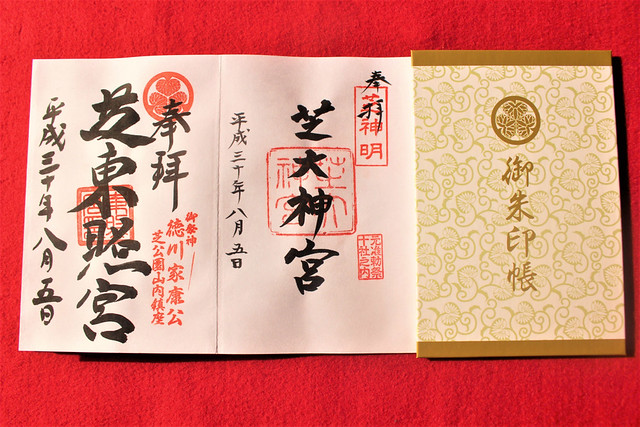 御朱印帳
奉拝
芝神明
芝大神宮
元准勅祭
十社之内
平成三十年八月五日
奉拝
御祭神
徳川家康公
芝公園山内鎮座
芝東照宮
平成三十年八月五日